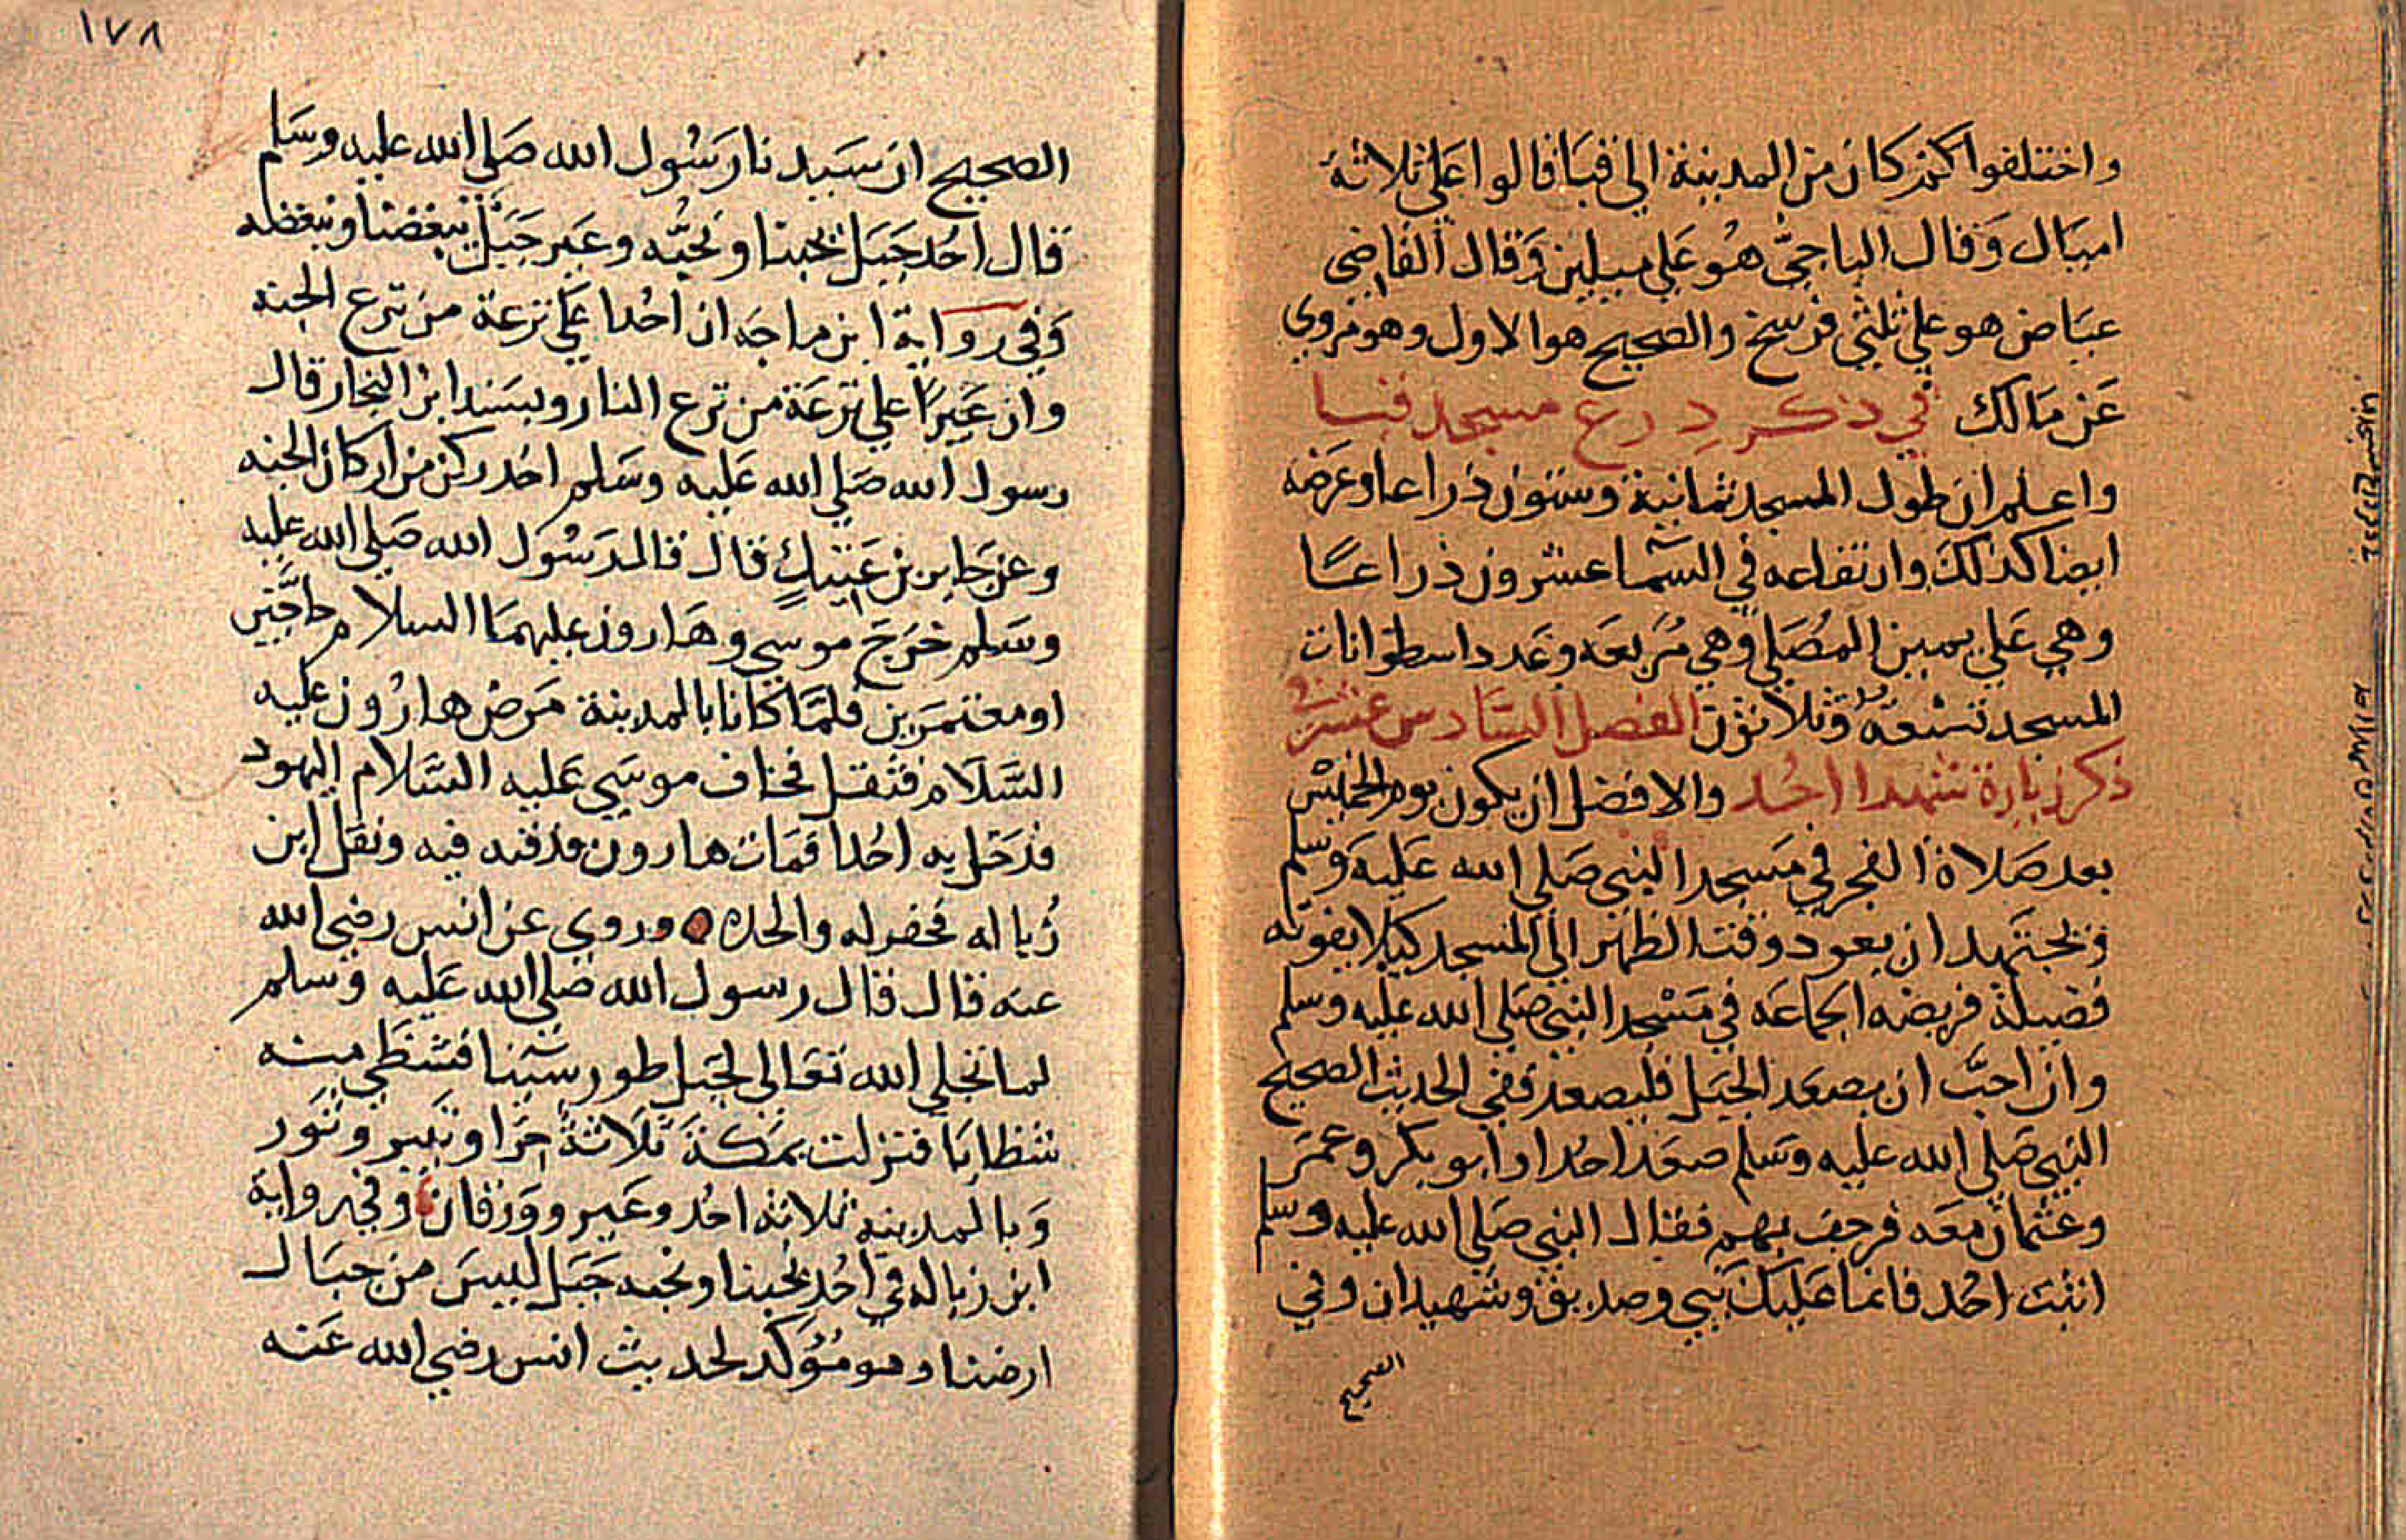 واختلفوا كم كان من المدينة الى قبا فالوا على ثلاثة
اميال وقال الباجي هو على ميلين وقال القاضي
عياض هو على ثلثي فرسخ والصحيح هو الاول وهو مروي
عن مالك في ذكر ذرع مسجد قبا
واعلم ان طول المسجد ثمانية وستون ذراعا وعرضه
ايضا كذلك وارتفاعه في السما عشرون ذراعا
وهي على يمين المصلي وهي مربعه وعدد اسطوانات
المسجد تسعة وثلاثون الفصل السادس عشر في
ذكر زيارة شهدا احد والافضل ان يكون يوم الخميس
بعد صلاة الفجر في مسجد النبي صلى الله عليه وسلم
ويجتهد ان يعود وقت الظهر الى المسجد كيلا يفوته
فضيلة فريضه الجماعه في مسجد النبي صلى الله عليه وسلم
وان احب ان يصعد الجبل فليصعد ففي الحديث الصحيح
النبي صلى الله عليه وسلم صعد احدا وابو بكر وعمر
وعثمان معه فرجف بهم فقال النبي صلى الله عليه وسلم
اثبت احد فانما عليك نبي وصديق وشهيدان وفي
الصحيح
١٧٨
الصحيح ان سيدنا رسول الله صلى الله عليه وسلم
قال احد جبل يحبنا ونحبه وعير جبل يبغضنا ونبغضه
وفي رواية ابن ماجه ان احدا على ترعة من ترع الجنة
وان عيرا على ترعة من ترع النار وبسند ابن النجار قال
رسول الله صلى الله عليه وسلم احد ركن من اركان الجنه
وعن جابر بن عتيك قال قال رسول الله صلى الله عليه
وسلم خرج موسى وهارون عليهما السلام حاجين
او معتمرين فلما كانا بالمدينة مرض هارون عليه
السلام فثقل فخاف موسى عليه السلام اليهود
فدخل به احدا فمات هارون فدفنه فيه ونقل ابن
زباله فحفر له والحده وروي عن انس رضي الله
عنه قال قال رسول الله صلى الله عليه وسلم
لما تجلى الله تعالى لجبل طور سينا فتشظى منه
شظايا فنزلت بمكة ثلاثة حرا وثبير وثور
وبالمدينه ثلاثة احد وعير وورقان وفي رواية
ابن زباله في احد يحبنا ونحبه جبل ليس من جبال
ارضنا وهو مؤكد لحديث انس رضي الله عنه